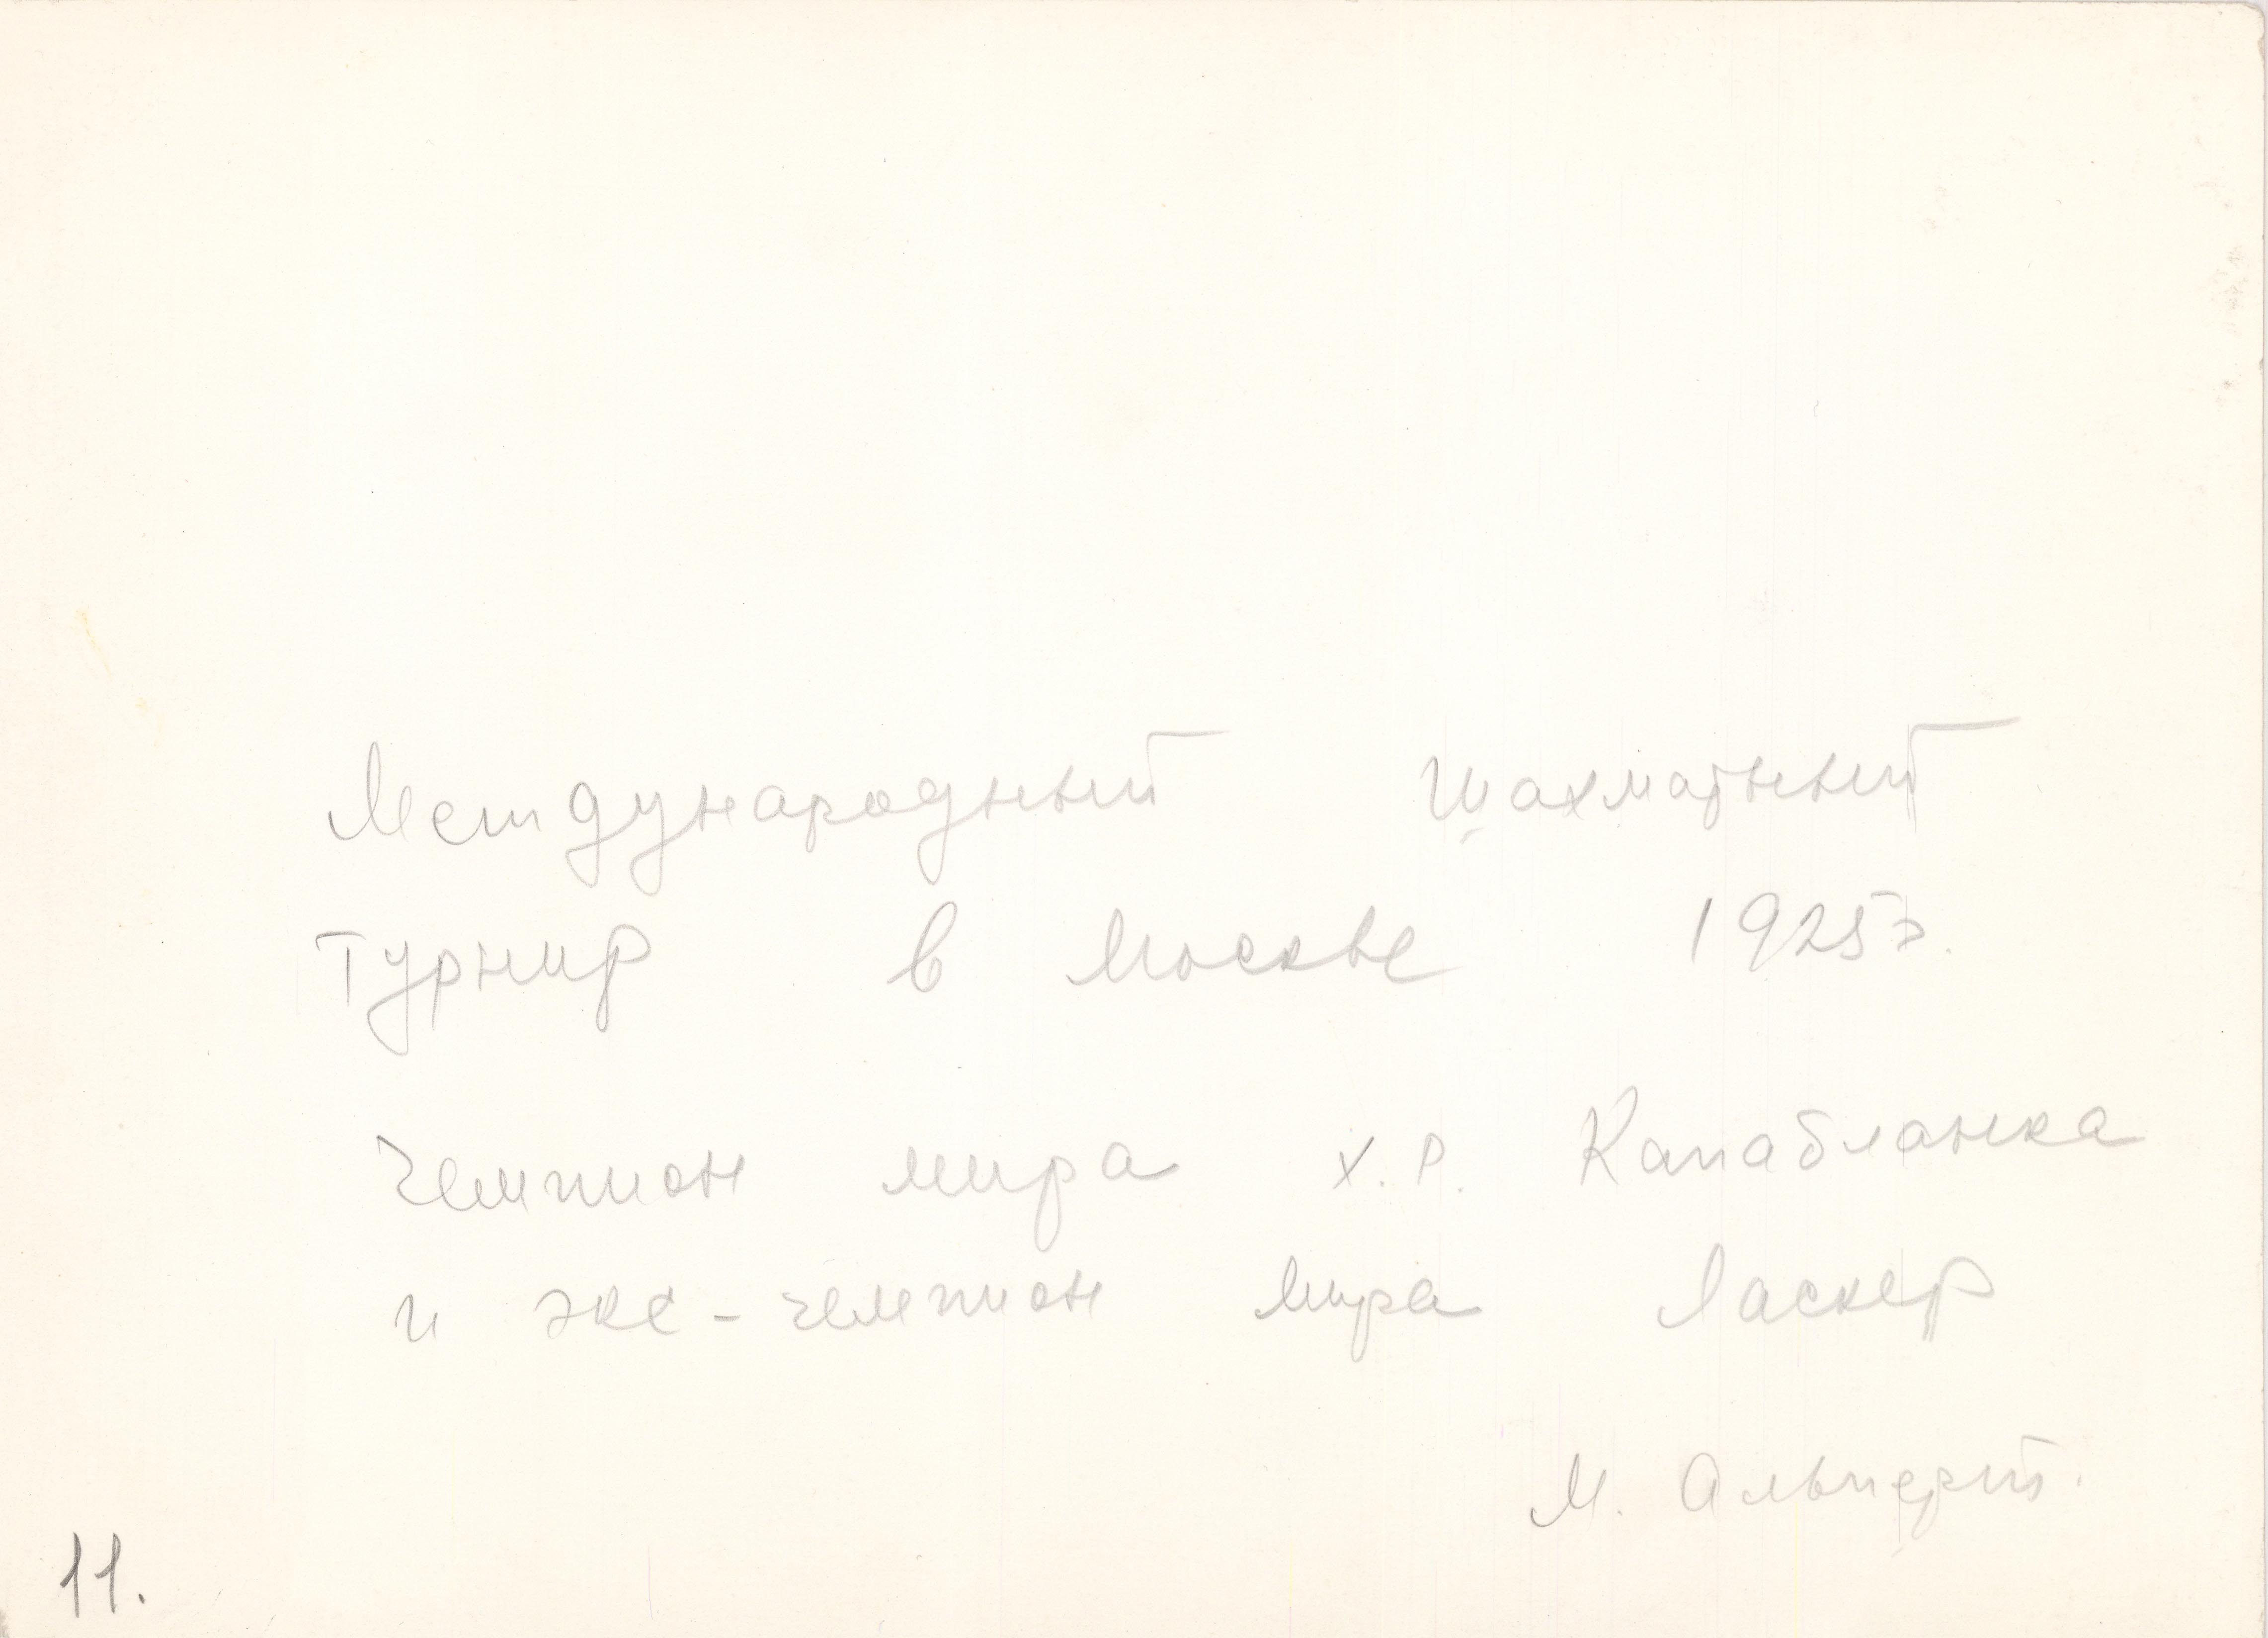 Международный шахматный
турнир в Москве 1925 г.
Чемпион мира Х. Р. Капабланка
и экс-чемпион мира Ласкер
М. Альперт.
11.